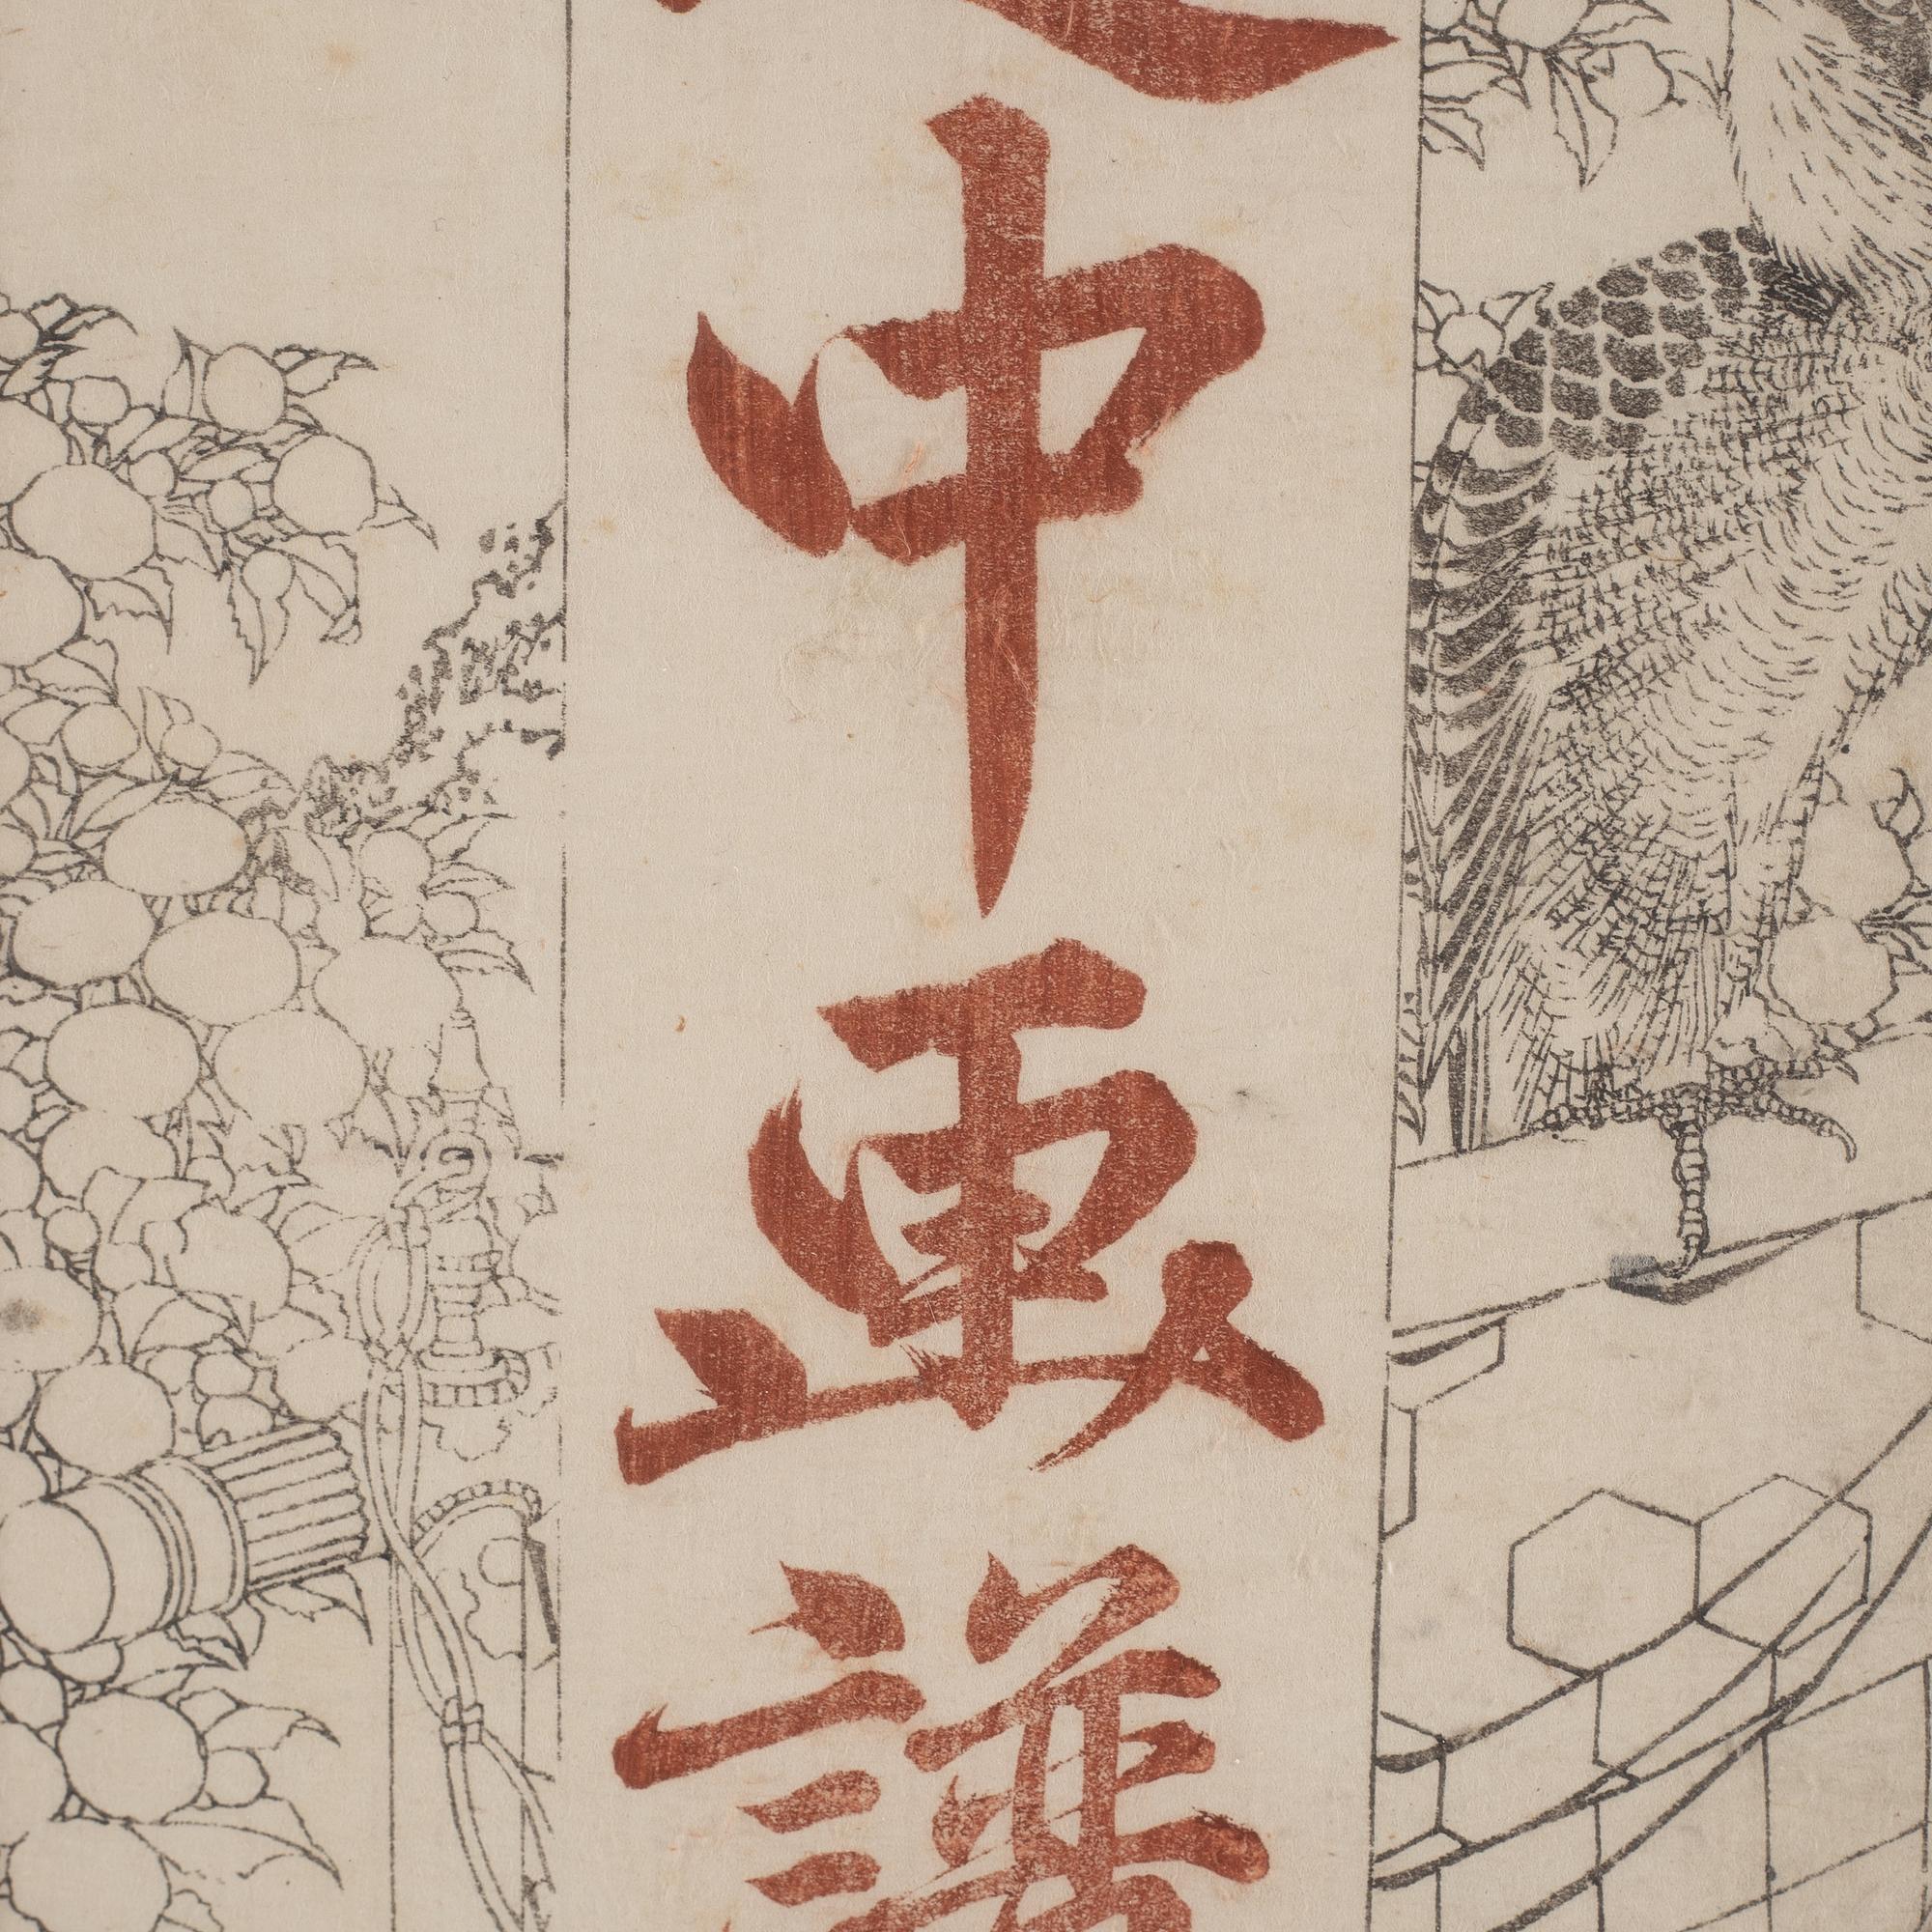 中画譜